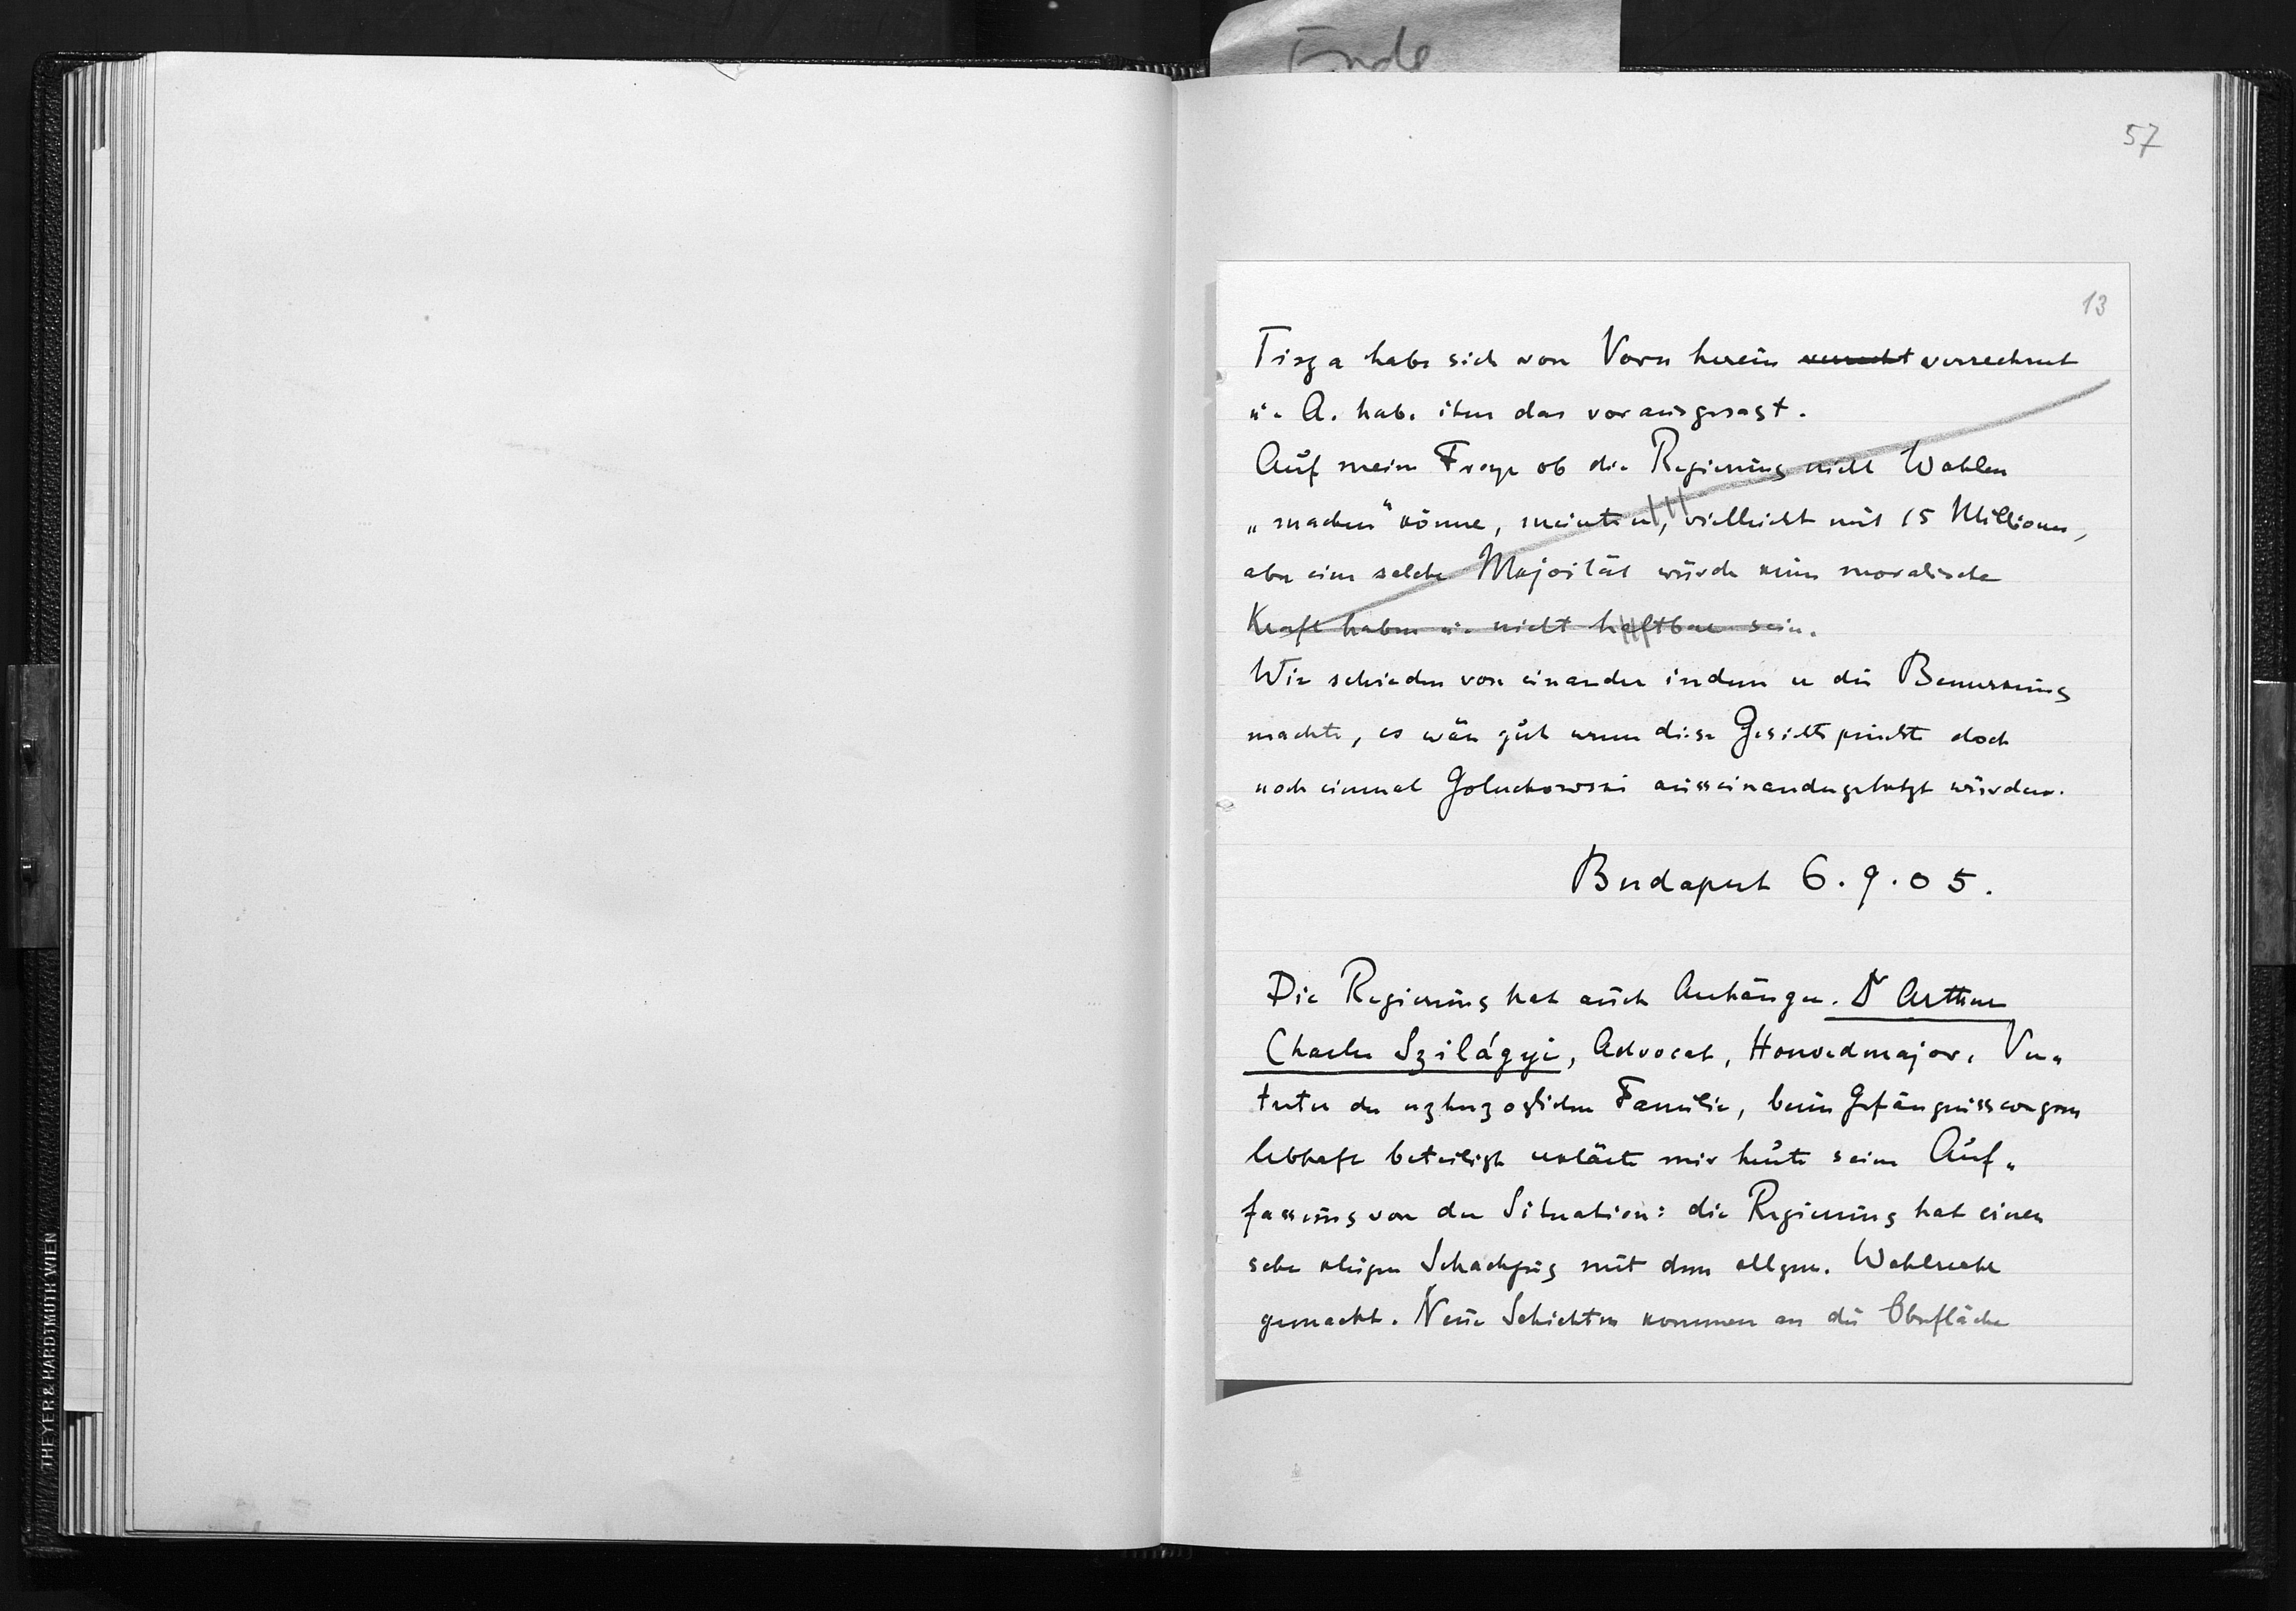 Ende
57
13
Tisza habe sich von Vorn herein verrecht verrechnet
u. A. habe ihm das vorausgesagt.
Auf meine Frage ob die Regierung nicht Wahlen
„machen" könne, meinte er, vielleicht mit 15 Millionen,
aber eine solche Majorität würde keine moralische
Kraft haben u. nicht haltbar sein.
Wir schieden von einander indem er die Bemerkung
machte, es wäre gut wenn diese Gesichtspunkte doch
noch einmal Goluchowski auseinandergesetzt würden.
Budapest 6.9.05.
Die Regierung hat auch Anhänger. Dr Arthur
Charles Szilágyi, Advocat, Honvedmajor, Ver„
treter der erzherzoglichen Familie, beim Gefängnisscongress
lebhaft beteiligt erklärte mir heute seine Auf„
fassung von der Situation: die Regierung hat einen
sehr klugen Schachzug mit dem allgem. Wahlrecht
gemacht. Neue Schichten kommen an die Oberfläche
THEYER & HARDTMUTH WIEN